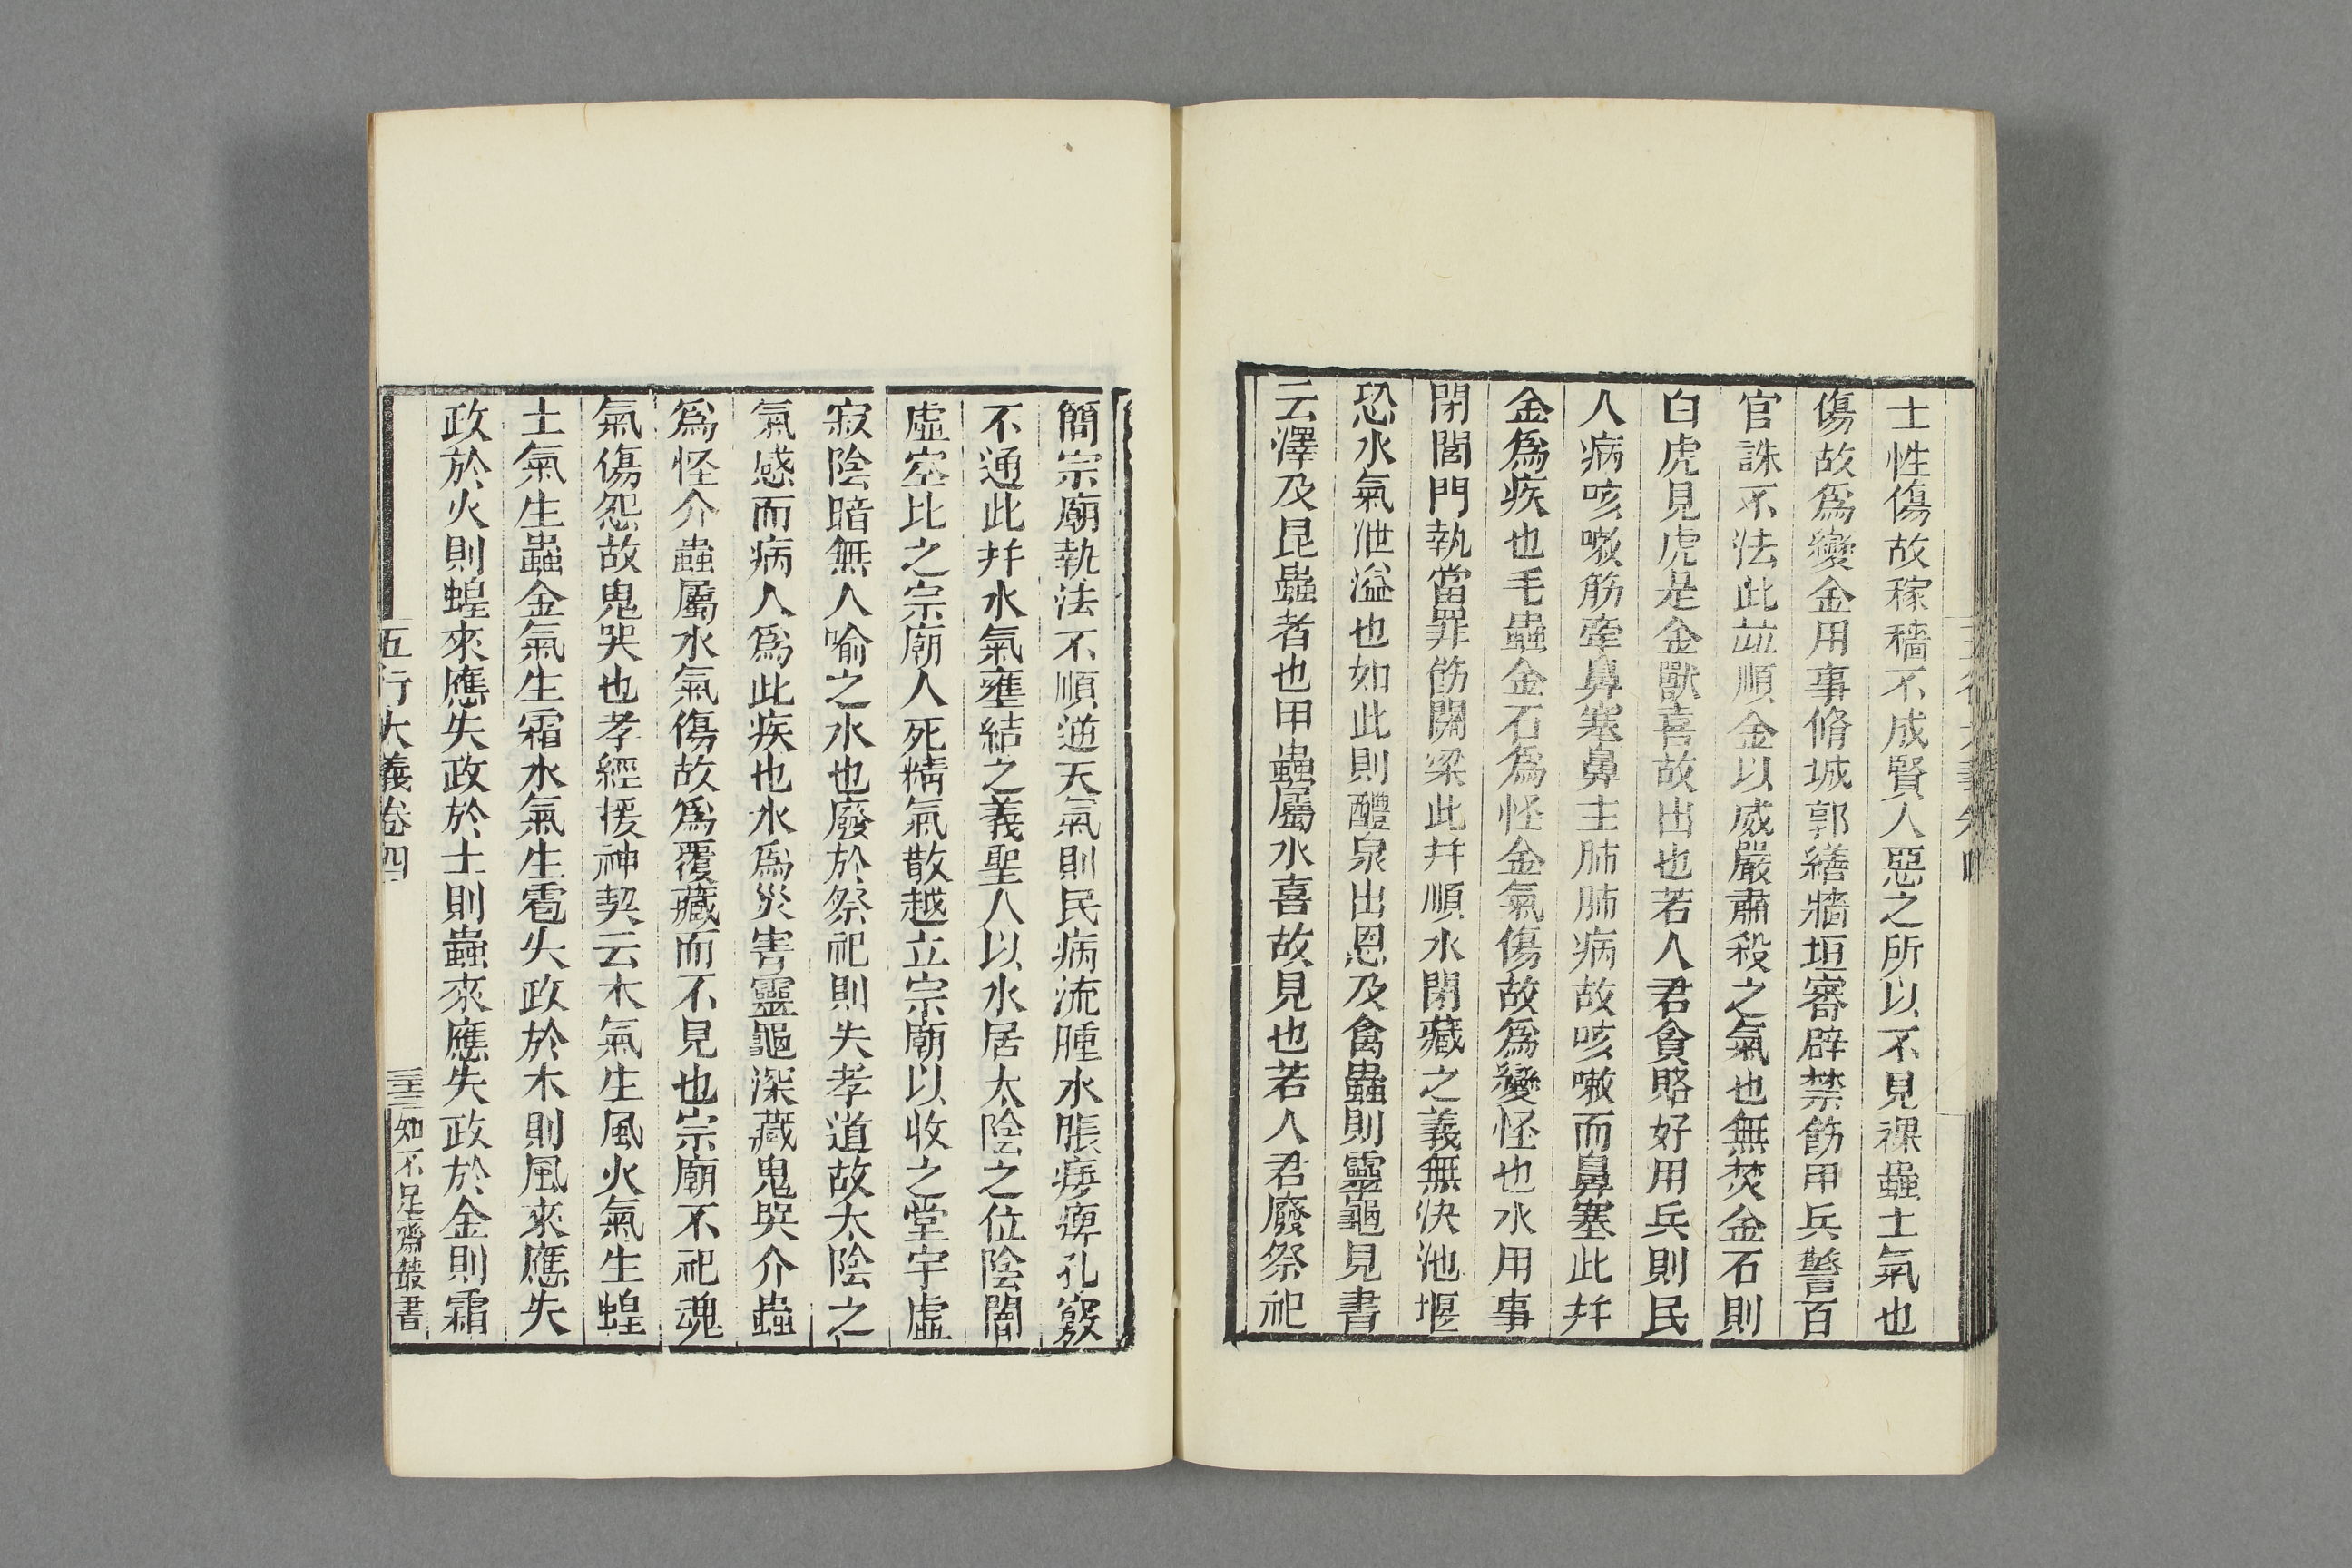 土性傷故稼穡不成賢人惡之所以不見裸蟲土氣也
傷故爲變金用事脩城郭繕牆垣審辟禁飭甲兵警百
官誅不法此並順金以威嚴肅殺之氣也無焚金石則
白虎見虎是金獸喜故出也若人君貪賂好用兵則民
人病咳嗽筋牽鼻塞鼻主肺肺病故咳嗽而鼻塞此幷
金爲疾也毛蟲金石爲怪金氣傷故爲變怪也水用事
閉閭門執當罪飭關梁此幷順水閉藏之義無決池堰
恐水氣泄溢也如此則醴泉出恩及禽蟲則靈龜見書
云澤及昆蟲者也甲蟲屬水喜故見也若人君廢祭祀
簡宗廟執法不順逆天氣則民病流腫水脹痿痺孔竅
不通此幷水氣壅結之義聖人以水居太陰之位陰闇
虛空比之宗廟人死精氣散越立宗廟以收之堂宇虛
寂陰暗無人喻之水也廢於祭祀則失孝道故太陰之
氣感而病人爲此疾也水爲災害靈龜深藏鬼哭介蟲
爲怪介蟲屬水氣傷故爲覆藏而不見也宗廟不祀魂
氣傷怨故鬼哭也孝經援神契云木氣生風火氣生蝗
土氣生蟲金氣生霜水氣生雹失政於木則風來應失
政於火則蝗來應失政於土則蟲來應失政於金則霜
五行大義卷四
三三
知不足齋叢書